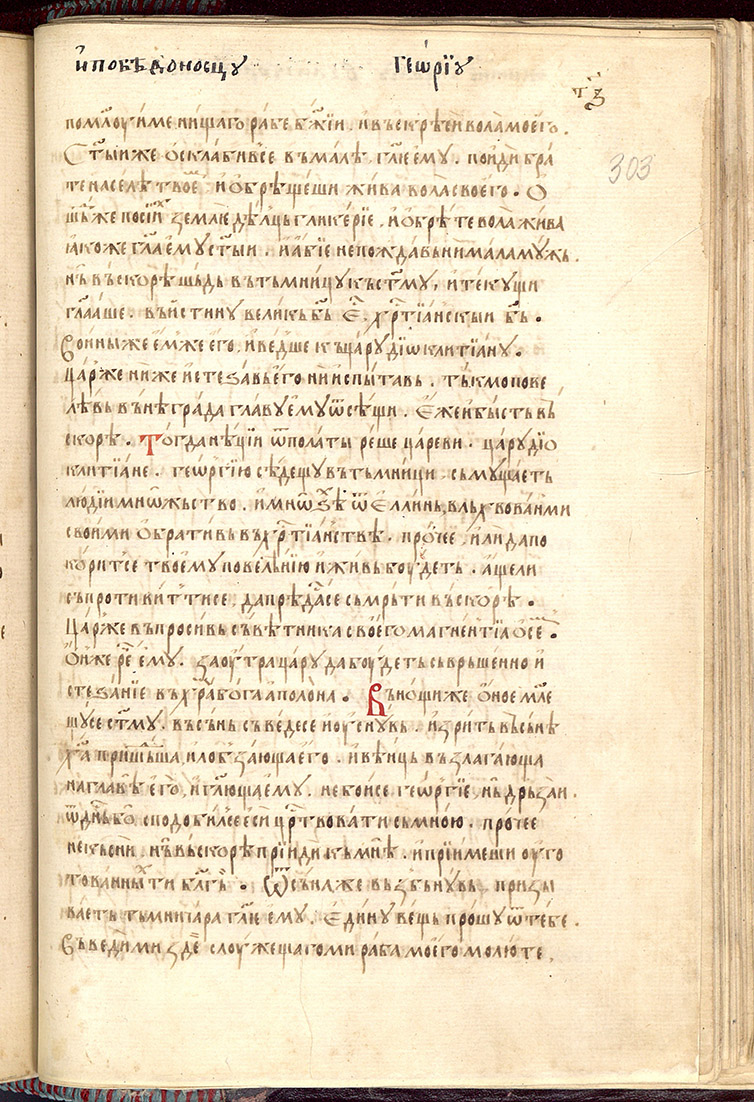 и҆ побѣдоносцꙋ геѡ҆рїꙋ
т҃з
303
помл҃оуи ме нищаго раба бж҃їи . и въскрѣси вола моего .
Ст҃ыи же ѡсклабивсе въмалѣ гл҃ѥ ємꙋ . поиди бра
те на селѣ твоє и ѡбрѣщеши жива вола своего . Ѡ
шⷣь же посїиⷯ земледѣлць гликерїе , и ѡбрѣте вола жива
ꙗкоже гл҃а ємꙋ ст҃ыи . и абїе не пождавь ни мала мꙋжь .
нь въскорѣ шьдь въ тьмницꙋ къ ст҃мꙋ , и текꙋщи
гл҃аше . въистинꙋ великь бь҃ єⷭ҇ хрⷭ҇тїанскыи бь҃ .
Воини же ємше его , и ведше къ царꙋ дїѡклитїанꙋ .
Цар же ни же истезавь его ни испытавь . тькмо пове
лѣвь вънѣ града главꙋ ємꙋ ѿсѣщи . Єже и бысть вь
скорѣ . Тогда нѣцїи ѿ полаты реше цареви . царꙋ дїо
клитїане . геѡргїю сѣдещꙋ въ тьмници сьмꙋщаѥть
людїи мнѡжьство . и мнѡзѣⷯ ѿ єллинь, вльхвованми
своими ѡбративь въ хрⷭ҇тїанствѣ . прочее , или да по
коритсе твоемꙋ повелѣнїю и живь боудеть . аще ли
съпротивиттисе , да прѣдасⷭ҇е сьмрьти въскорѣ .
Цар же въпросивь съвѣтника своего магнентїа ѡ сеⷨ .
Ѡн же реⷱ҇ ємꙋ . заоутра царꙋ да боудеть сьврьшенно и
стезанїе въ храⷨ бога аполона . Въ нощи же ѡное мле
щꙋсе ст҃мꙋ . въ сьнь съведесе и оуснꙋвь . и зрить въ сьнѣ
хаⷭ҇ пришⷣьша, и лобзающаего . и вѣнць възлагающа
на главѣ его , и гл҃юща ємꙋ . не боисе геѡргїе , нь дрьзаи .
ѿ дн҃ь бо сподобилсе єси црⷭ҇твовати сь мною . прочее
не късни , нь въскорѣ прїиди къ мнѣ . и прїимеши оуго
тованныⷯ ти благⷯь . Ѿ сьна же възбьнꙋвь , призы
ваеть тьмничара гл҃ѥ ємꙋ . Єдинꙋ вещь прошꙋ ѿ тебе .
въведи ми здеⷭ҇ слоужещаго ми раба моего молю те ,